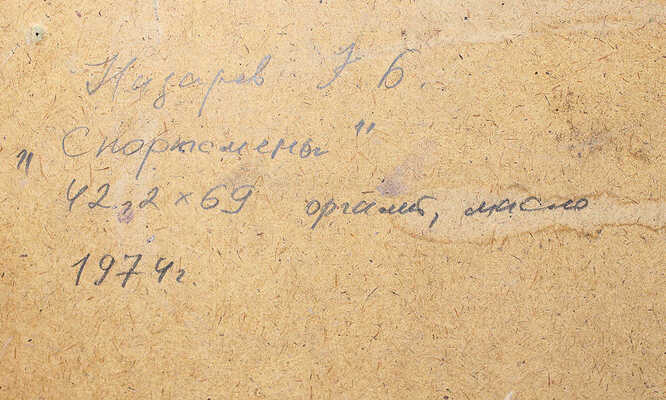 Назаров Г Б.
„Спортсмены"
42,2 × 69 оргалит, масло
1974г.